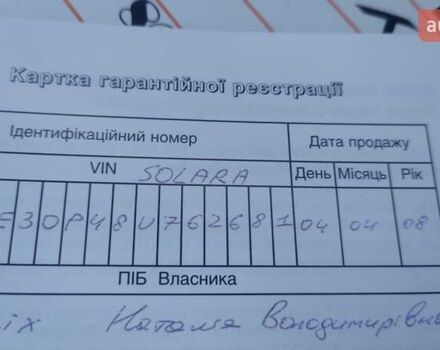 Картка гарантійної реєстрації
Ідентифікаційний номер Дата продажу
VIN SOLARA День Місяць Рік
E30P48U762681 04 04 08
ПІБ Власника
іх Наталія Володимирівна